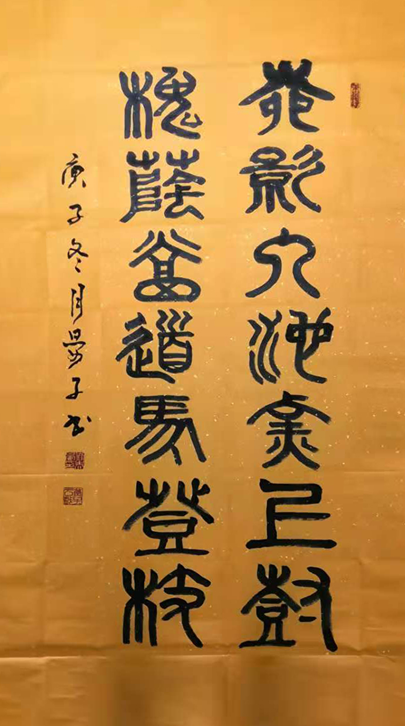 花影入池魚上樹
槐蔭當道馬登枝
庚子冬月子书